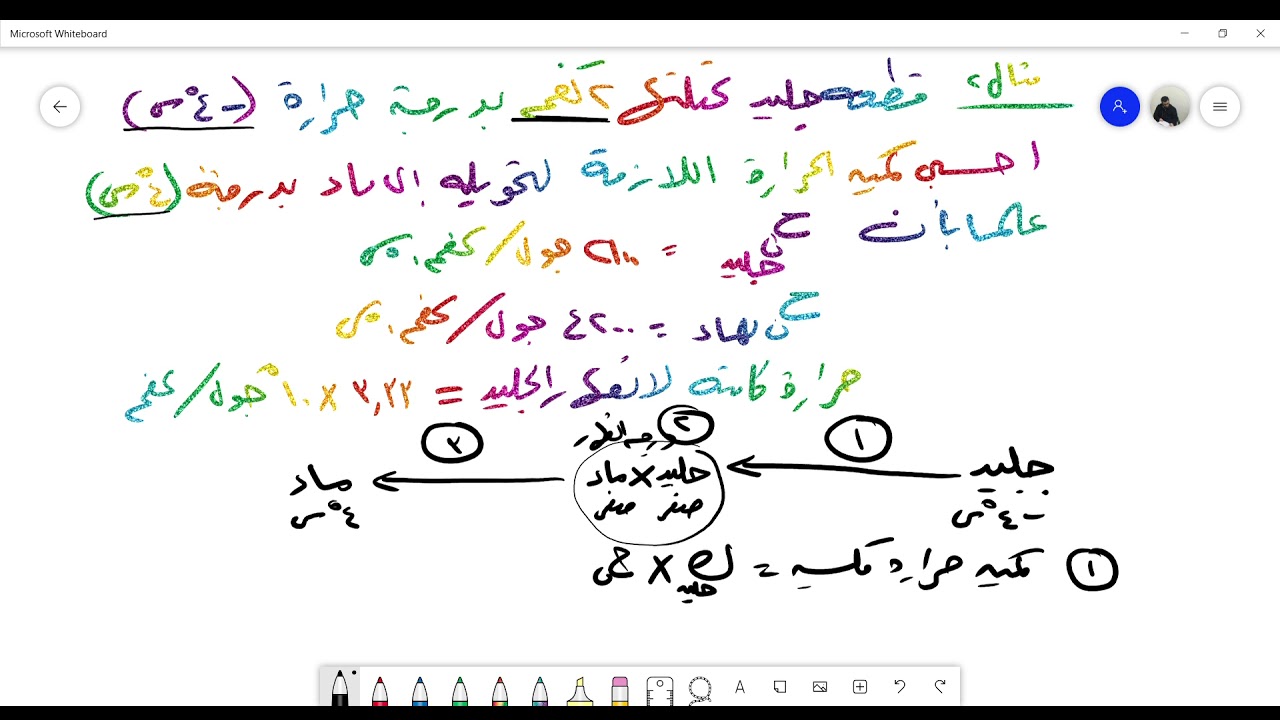 Microsoft Whiteboard
مثال٢ قطعة جليد كتلتها ٢ كغم بدرجة حرارة (-٤°س)
احسبي كمية الحرارة اللازمة لتحويله إلى ماء بدرجة (٤°س)
علما بأن ح ن جليد = ٢١٠٠ جول/كغم.°س
ح ن ماء = ٤٢٠٠ جول/كغم.°س
حرارة كامنة لانصهار الجليد = ٣,٣٣ × ١٠^٥ جول/كغم
١ ٢ ٣
جليد جليد × ماء ماء
-٤°س صفر صفر ٤°س
١ كمية حرارة مكتسبة = ك جليد ×
A